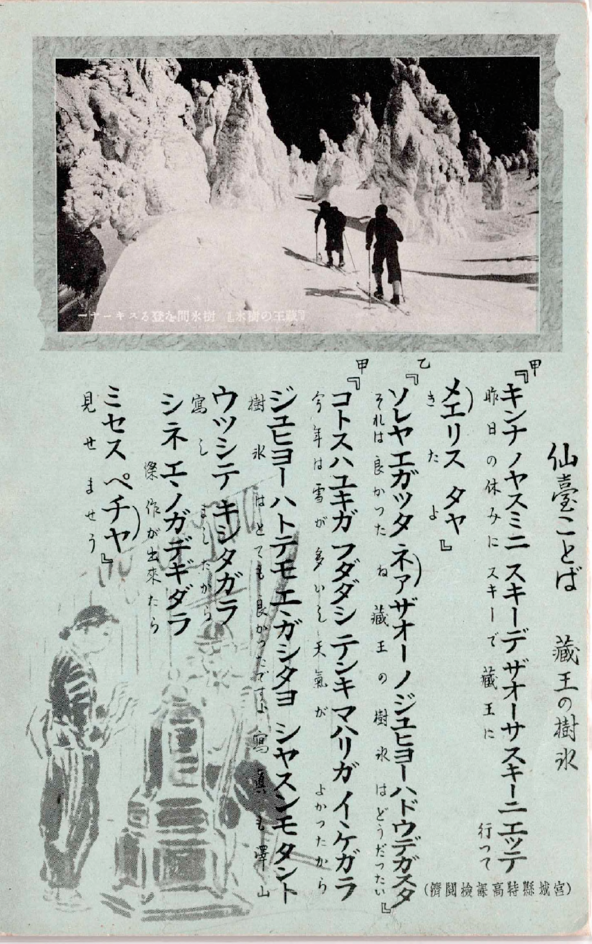 『蔵王の樹氷』 樹氷間を登るスキーヤー
仙臺ことば　蔵王の樹氷
(宮城縣特高課檢閲濟)
甲
『キンナノヤスミニ スキーデ ザオーサスキーニ エッテ
昨日の休みに スキーで 蔵王に 行つて
メエリスタヤ』
きたよ
乙
『ソレヤ エガッタ ネァ ザオーノ ジュヒョーハ ドウデガスタ
それは良かつたね 蔵王の樹氷はどうだつたい』
甲
『コトスハ ユキガ フダダシ テンキマハリガ イヽケガラ
今年は雪が多いし 天氣が よかつたから
ジュヒョーハトテモ エヽガシタヨ シャスンモ タント
樹氷はとても良かつたですよ 寫眞も澤山
ウツシテ キシタガラ
寫し ましたから
シネ エヽノガ デギダラ
傑作が出來たら
ミセス ペチャ』
見せませう